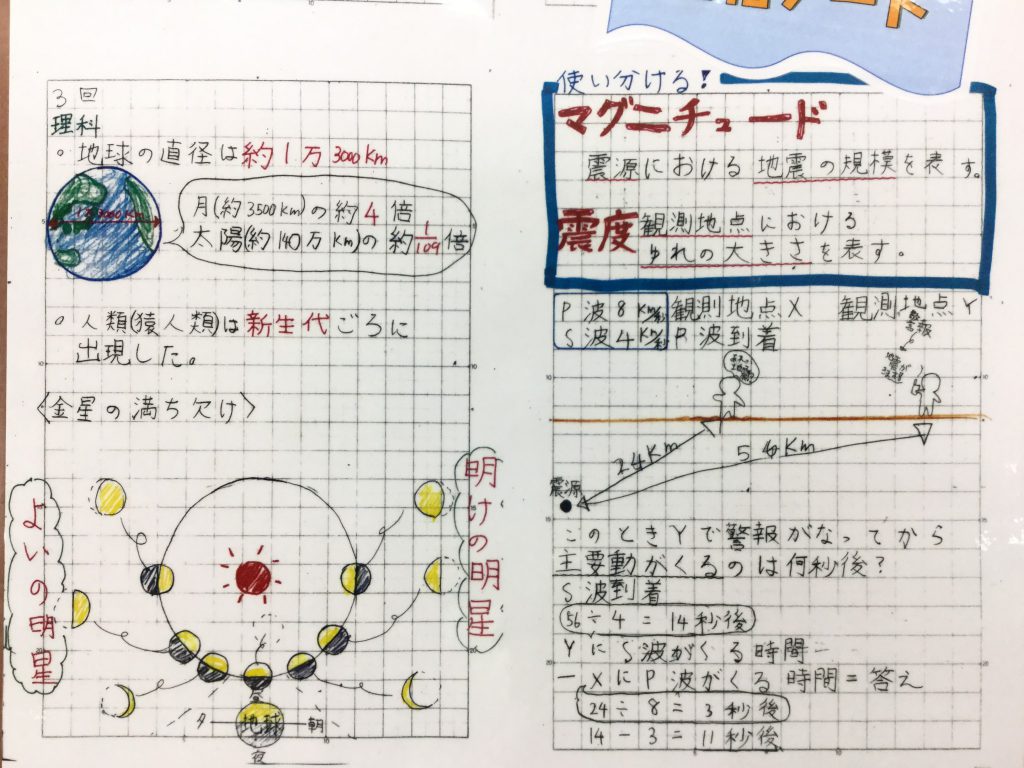 3回
理科
。地球の直径は約1万3000Km
月(約3500Km)の約4倍
太陽(約140万Km)の約1/109倍
。人類(猿人類)は新生代ごろに
出現した。
〈金星の満ち欠け〉
よいの明星
明けの明星
夕
地球
朝
夜
使い分ける!
マグニチュード
震源における地震の規模を表す。
震度 観測地点における
ゆれの大きさを表す。
P波8Km/秒 観測地点X 観測地点Y
S波4Km/秒 P波到着
警報
地震が
24Km
56Km
震源
このときYで警報がなってから
主要動がくるのは何秒後?
S波到着
56÷4=14秒後
YにS波がくる時間-
-XにP波がくる時間=答え
24÷8=3秒後
14-3=11秒後